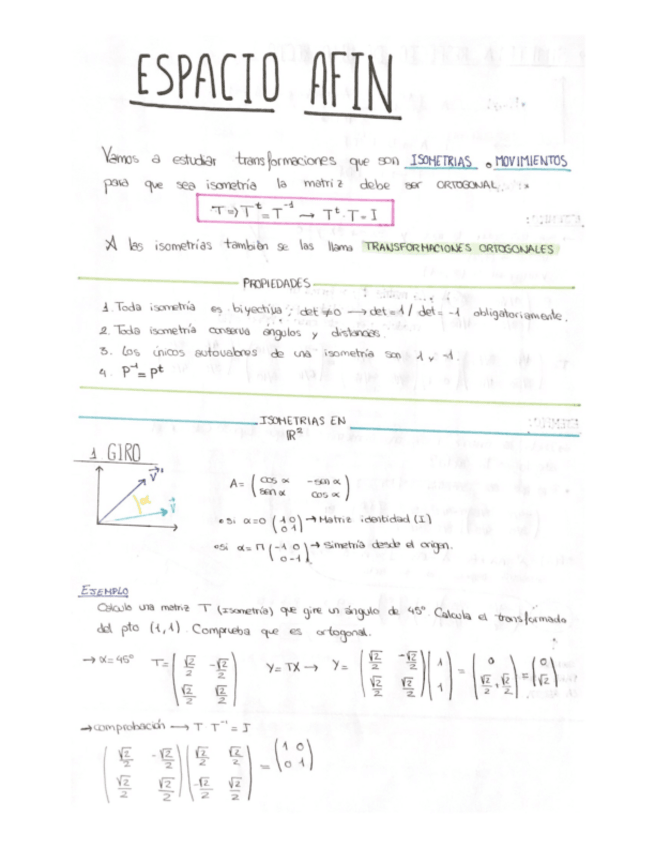 ESPACIO AFIN
Vamos a estudiar transformaciones que son ISOMETRIAS o MOVIMIENTOS
para que sea isometría la matriz debe ser ORTOGONAL
T => T^t = T^-1 → T^t · T = I
A las isometrías también se las llama TRANSFORMACIONES ORTOGONALES
PROPIEDADES
1. Toda isometría es biyectiva ; det ≠ 0 → det = 1 / det = -1 obligatoriamente.
2. Toda isometría conserva ángulos y distancias.
3. Los únicos autovalores de una isometría son 1 y -1.
4. P^-1 = P^t
ISOMETRIAS EN
IR²
1 GIRO
v' α v
A = ( cos α -sen α
sen α cos α )
Si α=0 ( 1 0
0 1 ) → Matriz identidad (I)
Si α=π ( -1 0
0 -1 ) → Simetría desde el origen.
EJEMPLO
Calcula una matriz T (Isometría) que gire un ángulo de 45º. Calcula el transformado
del pto (1,1). Comprueba que es ortogonal.
→ α=45º T= ( √2/2 -√2/2
√2/2 √2/2 ) Y=TX → Y= ( √2/2 -√2/2
√2/2 √2/2 ) ( 1
1 ) = ( 0
√2/2 + √2/2 ) = ( 0
√2 )
→ comprobación → T T^-1 = I
( √2/2 -√2/2
√2/2 √2/2 ) ( √2/2 √2/2
-√2/2 √2/2 ) = ( 1 0
0 1 )